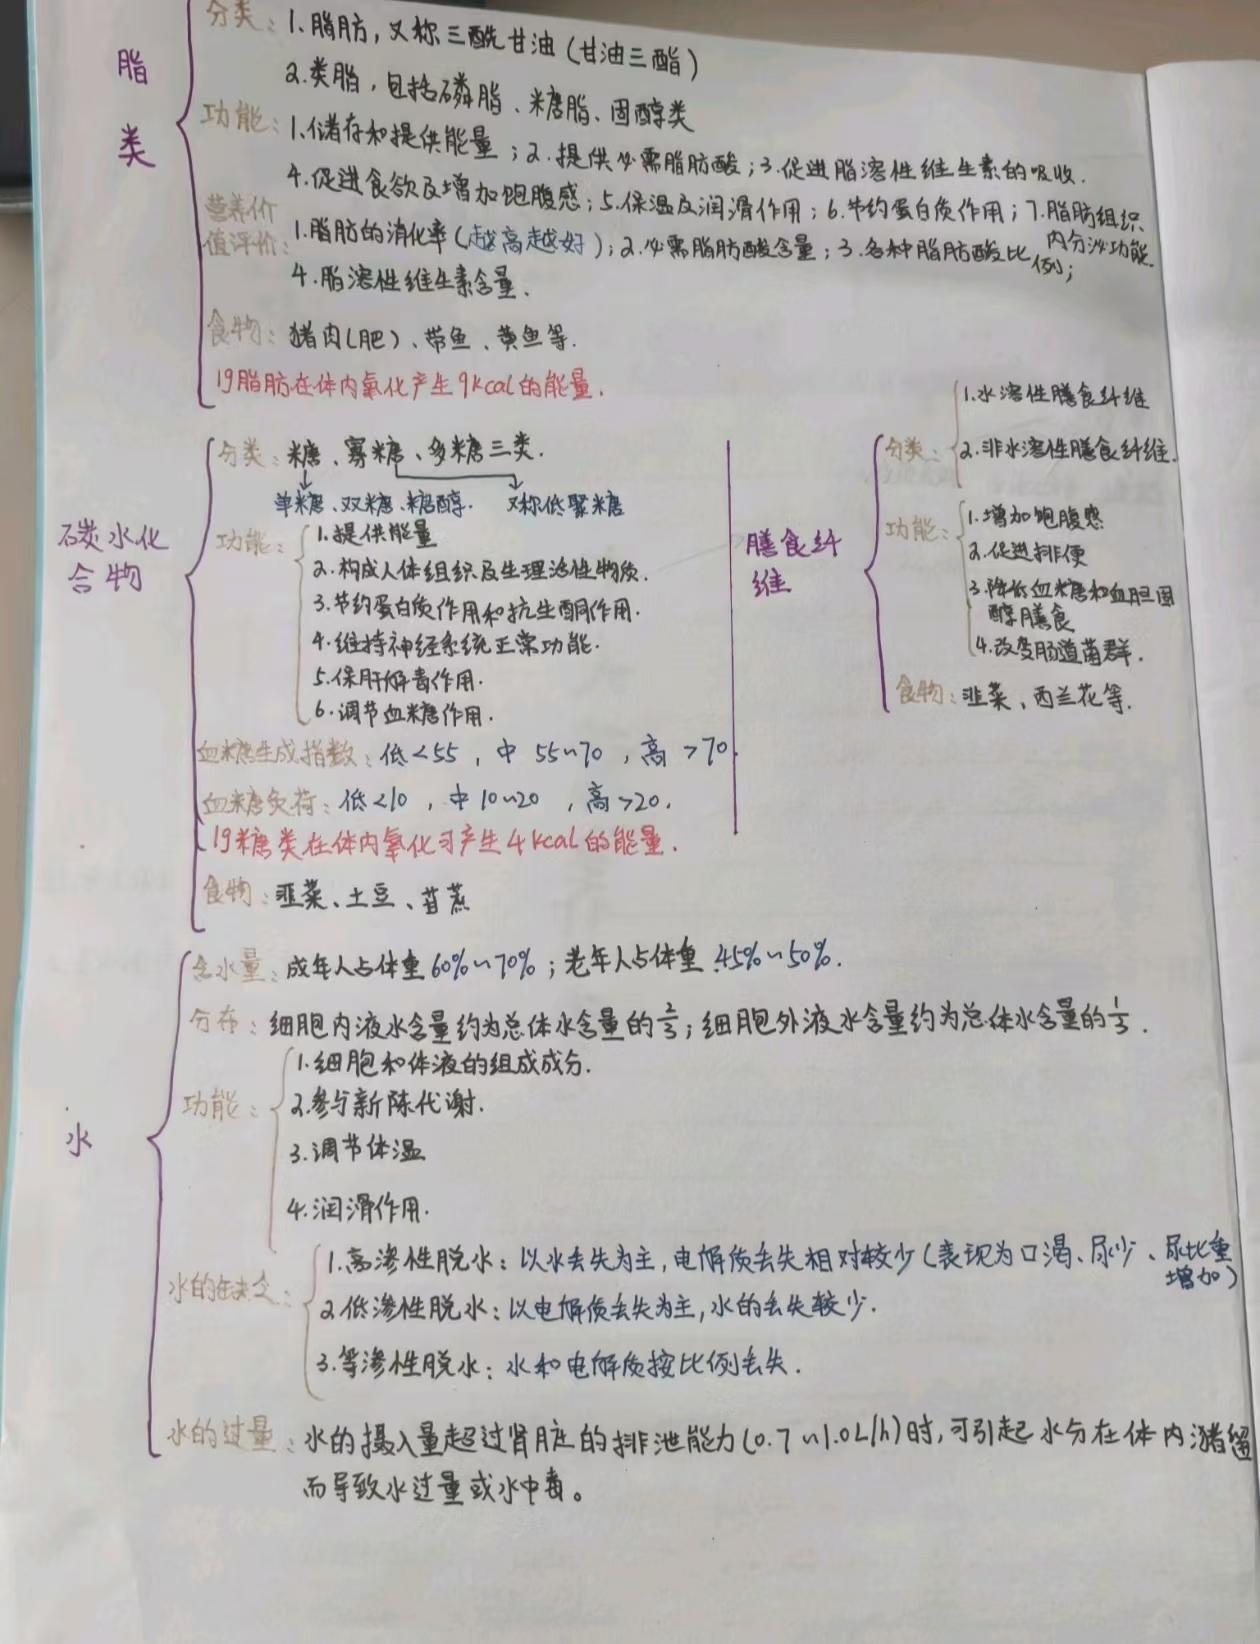 脂类
分类：1.脂肪，又称三酰甘油(甘油三酯)
2.类脂，包括磷脂、糖脂、固醇类
功能：1.储存和提供能量；2.提供必需脂肪酸；3.促进脂溶性维生素的吸收.
4.促进食欲及增加饱腹感；5.保温及润滑作用；6.节约蛋白质作用；7.脂肪组织
内分泌功能.
营养价值评价：1.脂肪的消化率(越高越好)；2.必需脂肪酸含量；3.各种脂肪酸比例；
4.脂溶性维生素含量.
食物：猪肉(肥)、带鱼、黄鱼等.
1g脂肪在体内氧化产生9kcal的能量.
碳水化合物
分类：糖、寡糖、多糖三类.
单糖、双糖、糖醇. 又称低聚糖
功能：1.提供能量
2.构成人体组织及生理活性物质.
3.节约蛋白质作用和抗生酮作用.
4.维持神经系统正常功能.
5.保肝解毒作用.
6.调节血糖作用.
血糖生成指数：低<55，中 55~70，高 >70
血糖负荷：低<10，中10~20，高>20.
1g糖类在体内氧化可产生4kcal的能量.
食物：韭菜、土豆、苷蔗
膳食纤维
分类：1.水溶性膳食纤维
2.非水溶性膳食纤维.
功能：1.增加饱腹感
2.促进排便
3.降低血糖和血胆固
醇膳食
4.改变肠道菌群.
食物：韭菜、西兰花等.
水
含水量：成年人占体重60%~70%；老年人占体重45%~50%.
分布：细胞内液水含量约为总体水含量的2/3；细胞外液水含量约为总体水含量的1/3.
功能：1.细胞和体液的组成成分.
2.参与新陈代谢.
3.调节体温
4.润滑作用.
水的缺乏：1.高渗性脱水：以水丢失为主，电解质丢失相对较少(表现为口渴、尿少、尿比重
增加)
2.低渗性脱水：以电解质丢失为主，水的丢失较少.
3.等渗性脱水：水和电解质按比例丢失.
水的过量：水的摄入量超过肾脏的排泄能力(0.7~1.0L/h)时，可引起水分在体内潴留
而导致水过量或水中毒。